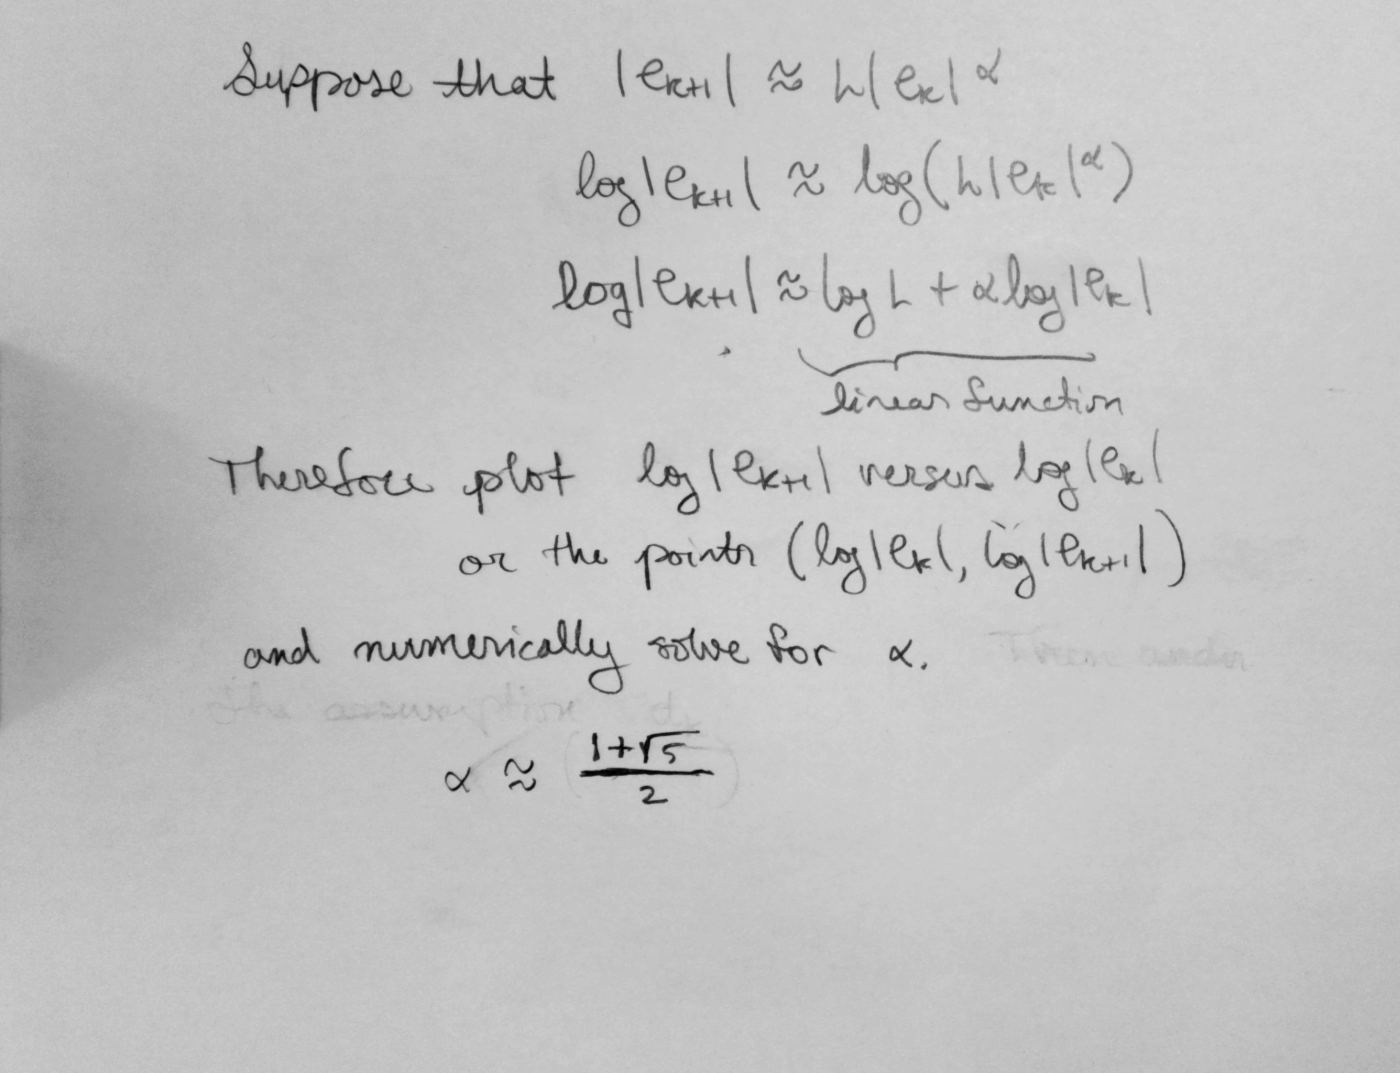 Suppose that |e_{k+1}| ≈ L|e_k|^α
log|e_{k+1}| ≈ log(L|e_k|^α)
log|e_{k+1}| ≈ log L + α log|e_k|
linear function
Therefore plot log|e_{k+1}| versus log|e_k|
or the points (log|e_k|, log|e_{k+1}|)
and numerically solve for α.
the assumption
α ≈ \frac{1+√5}{2}